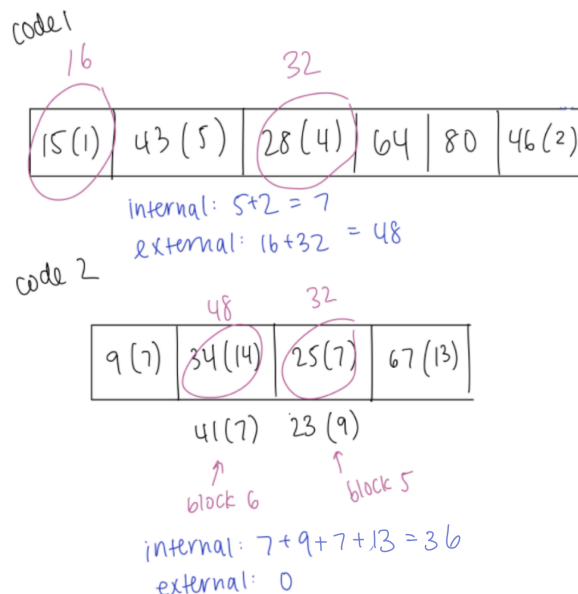 code 1
16 32
15(1) 43(5) 28(4) 64 80 46(2)
internal: 5+2=7
external: 16+32 = 48
code 2
48 32
9(7) 34(14) 25(7) 67(13)
41(7) 23(9)
block 6 block 5
internal: 7+9+7+13=36
external: 0